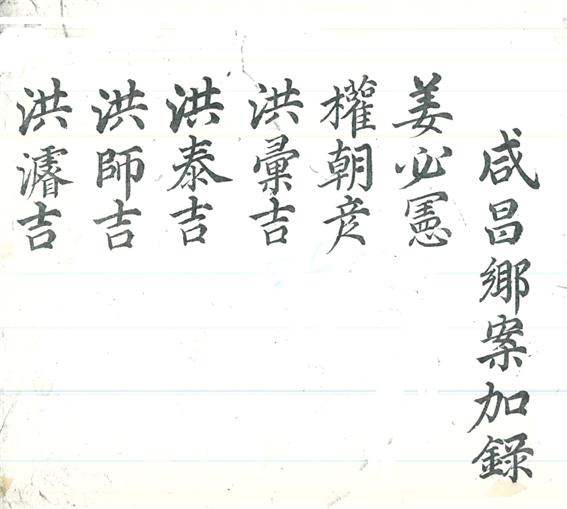 咸昌鄉案加錄
姜必憲
權朝彦
洪彙吉
洪泰吉
洪師吉
洪濬吉